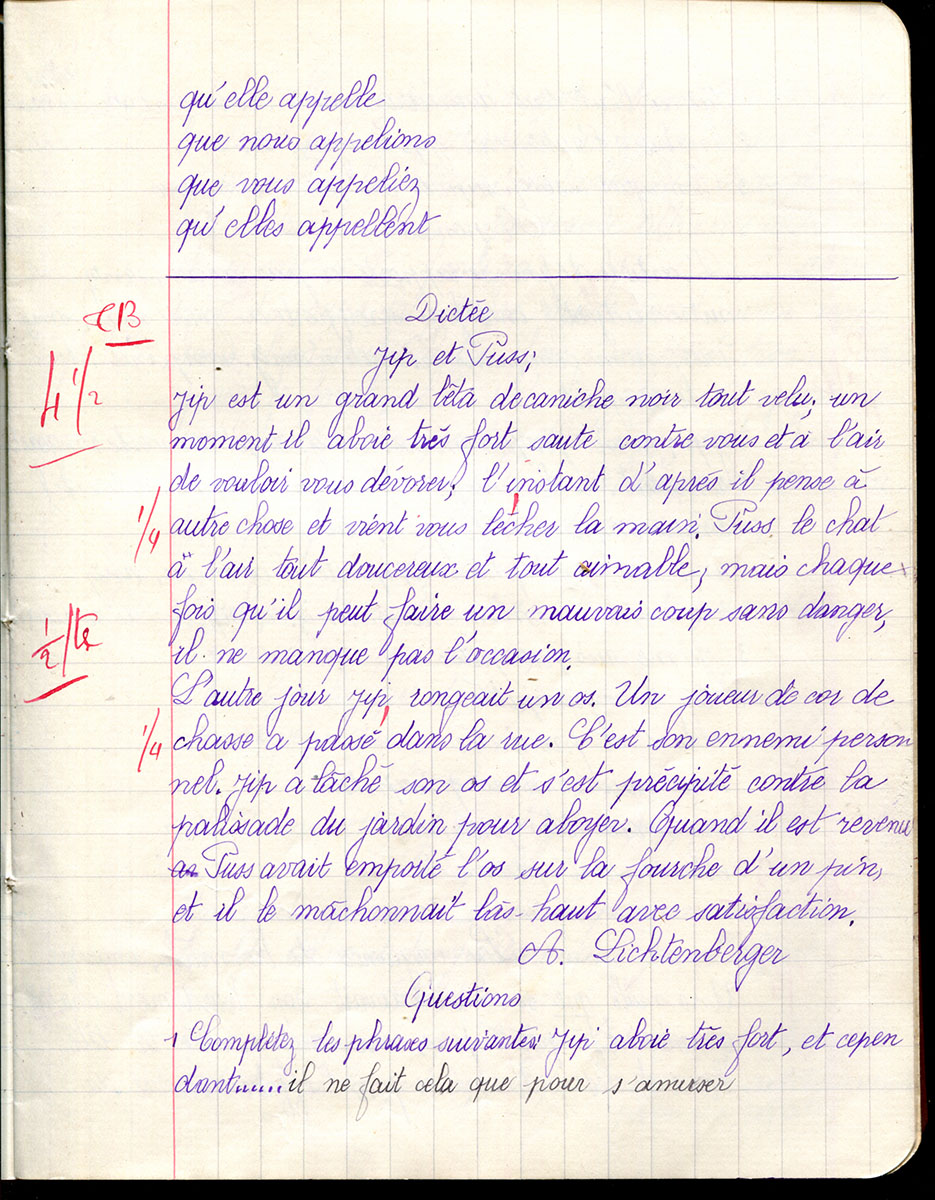 qu'elle appelle
que nous appelions
que vous appeliez
qu'elles appellent
Dictée
Jip et Puss;
TB
4 1/2
Jip est un grand bêta de caniche noir tout velu; un
moment il aboie très fort saute contre vous et à l'air
de vouloir vous dévorer; l'instant d'après il pense à
1/4
autre chose et vient vous lêcher la main. Puss le chat
à l'air tout doucereux et tout aimable; mais chaque
fois qu'il peut faire un mauvais coup sans danger,
1/2
il ne manque pas l'occasion.
L'autre jour Jip, rongeait un os. Un joueur de cor de
1/4
chasse a passé dans la rue. C'est son ennemi person
nel. Jip a lâché son os et s'est précipité contre la
palissade du jardin pour aboyer. Quand il est revenu
Puss avait emporté l'os sur la fourche d'un pin,
et il le mâchonnait làs-haut avec satisfaction.
A. Lichtenberger
Questions
1 Complétez les phrases suivantes: Jip aboie très fort, et cepen
dant......il ne fait cela que pour s'amuser